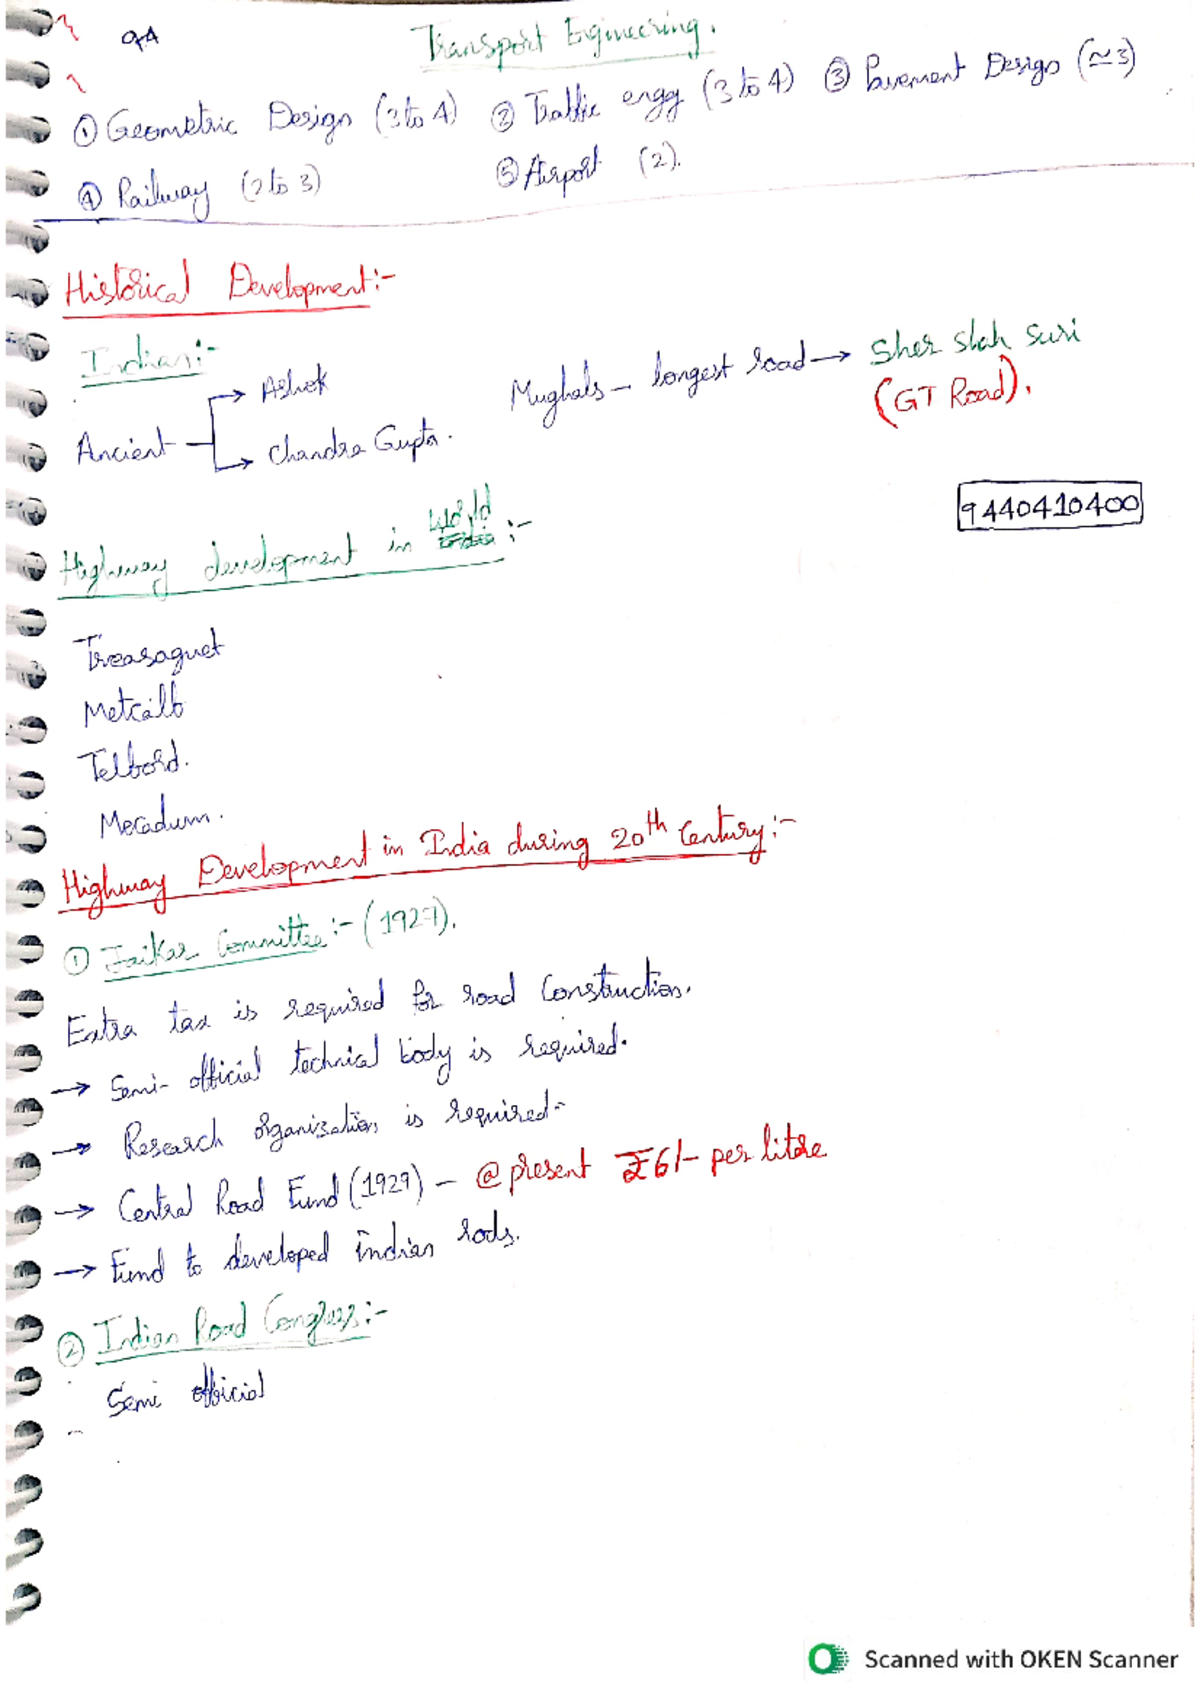 Transport Engineering.
① Geometric Design (3 to 4) ② Traffic engg (3 to 4) ③ Pavement Design (≃3)
④ Railway (2 to 3) ⑤ Airport (2).
Historical Development:-
Indian:-
Ancient → Ashok
→ Chandra Gupta.
Mughals - longest road → Sher shah suri
(GT Road).
9440410400
Highway development in World:-
Treasaguet
Metcalb
Telbord.
Mecadum.
Highway Development in India during 20th Century:-
① Jaikar Committee:- (1927).
Extra tax is required for road Construction.
→ Semi-official technical body is required.
→ Research organization is required-
→ Central Road Fund (1929) - @ present ₹6/- per litre
→ Fund to developed Indian rods.
② Indian Road Congress:-
Semi official
Scanned with OKEN Scanner